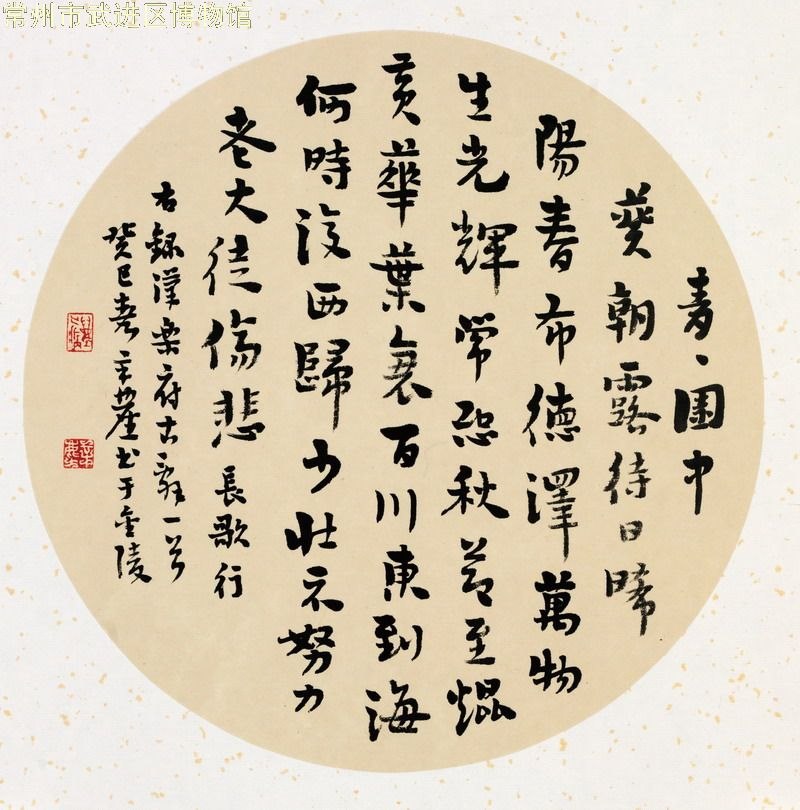 常州市武进区博物馆
青〻園中
葵朝露待日晞
陽春布德澤萬物
生光輝常恐秋節至焜
黄華葉衰百川東到海
何時復西歸少壯不努力
老大徒傷悲 長歌行
右録漢樂府古辭一首
癸巳春 書于金陵